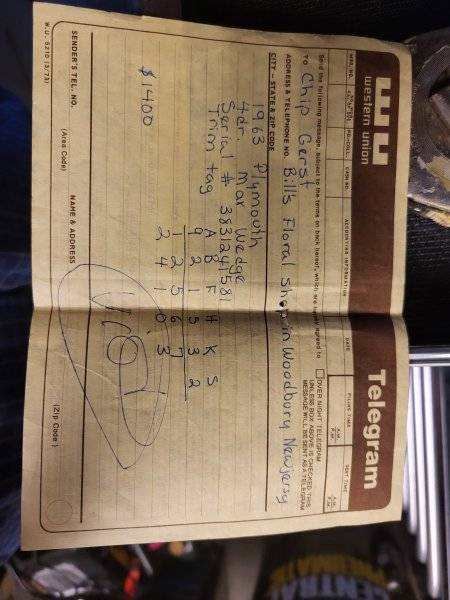 western union
Telegram
MSG. NO.
CASH NO.
ACCOUNTING INFORMATION
DATE
FILING TIME
A.M.
P.M.
SENT TIME
A.M.
P.M.
Send the following message, subject to the terms on back hereof, which are agreed to
OVER NIGHT TELEGRAM
UNLESS BOX ABOVE IS CHECKED THIS
MESSAGE WILL BE SENT AS A TELEGRAM
TO Chip Gerst
ADDRESS & TELEPHONE NO. Bill's Floral shop in Woodbury New jersy
CITY – STATE & ZIP CODE
1963 Plymouth
4dr. Max Wedge
Serial # 3831241581
Trim tag A B F H K S
9 2 1 5 3 2
1 2 5 6 7
2 4 1 0 3
$1400
SENDER'S TEL. NO.
(Area Code)
NAME & ADDRESS
(Zip Code)
W.U. 5210 (3/73)
CENTRAL
PNEUMATIC